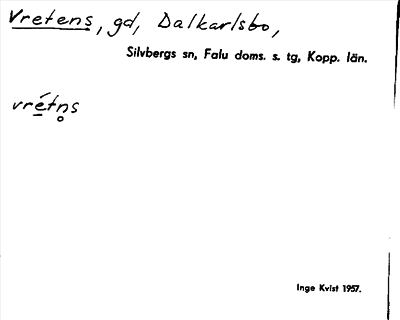 Vretens, gd, Dalkarlsbo,
Silvbergs sn, Falu doms. s. tg, Kopp. län.
vré̲tn̥s
Inge Kvist 1957.